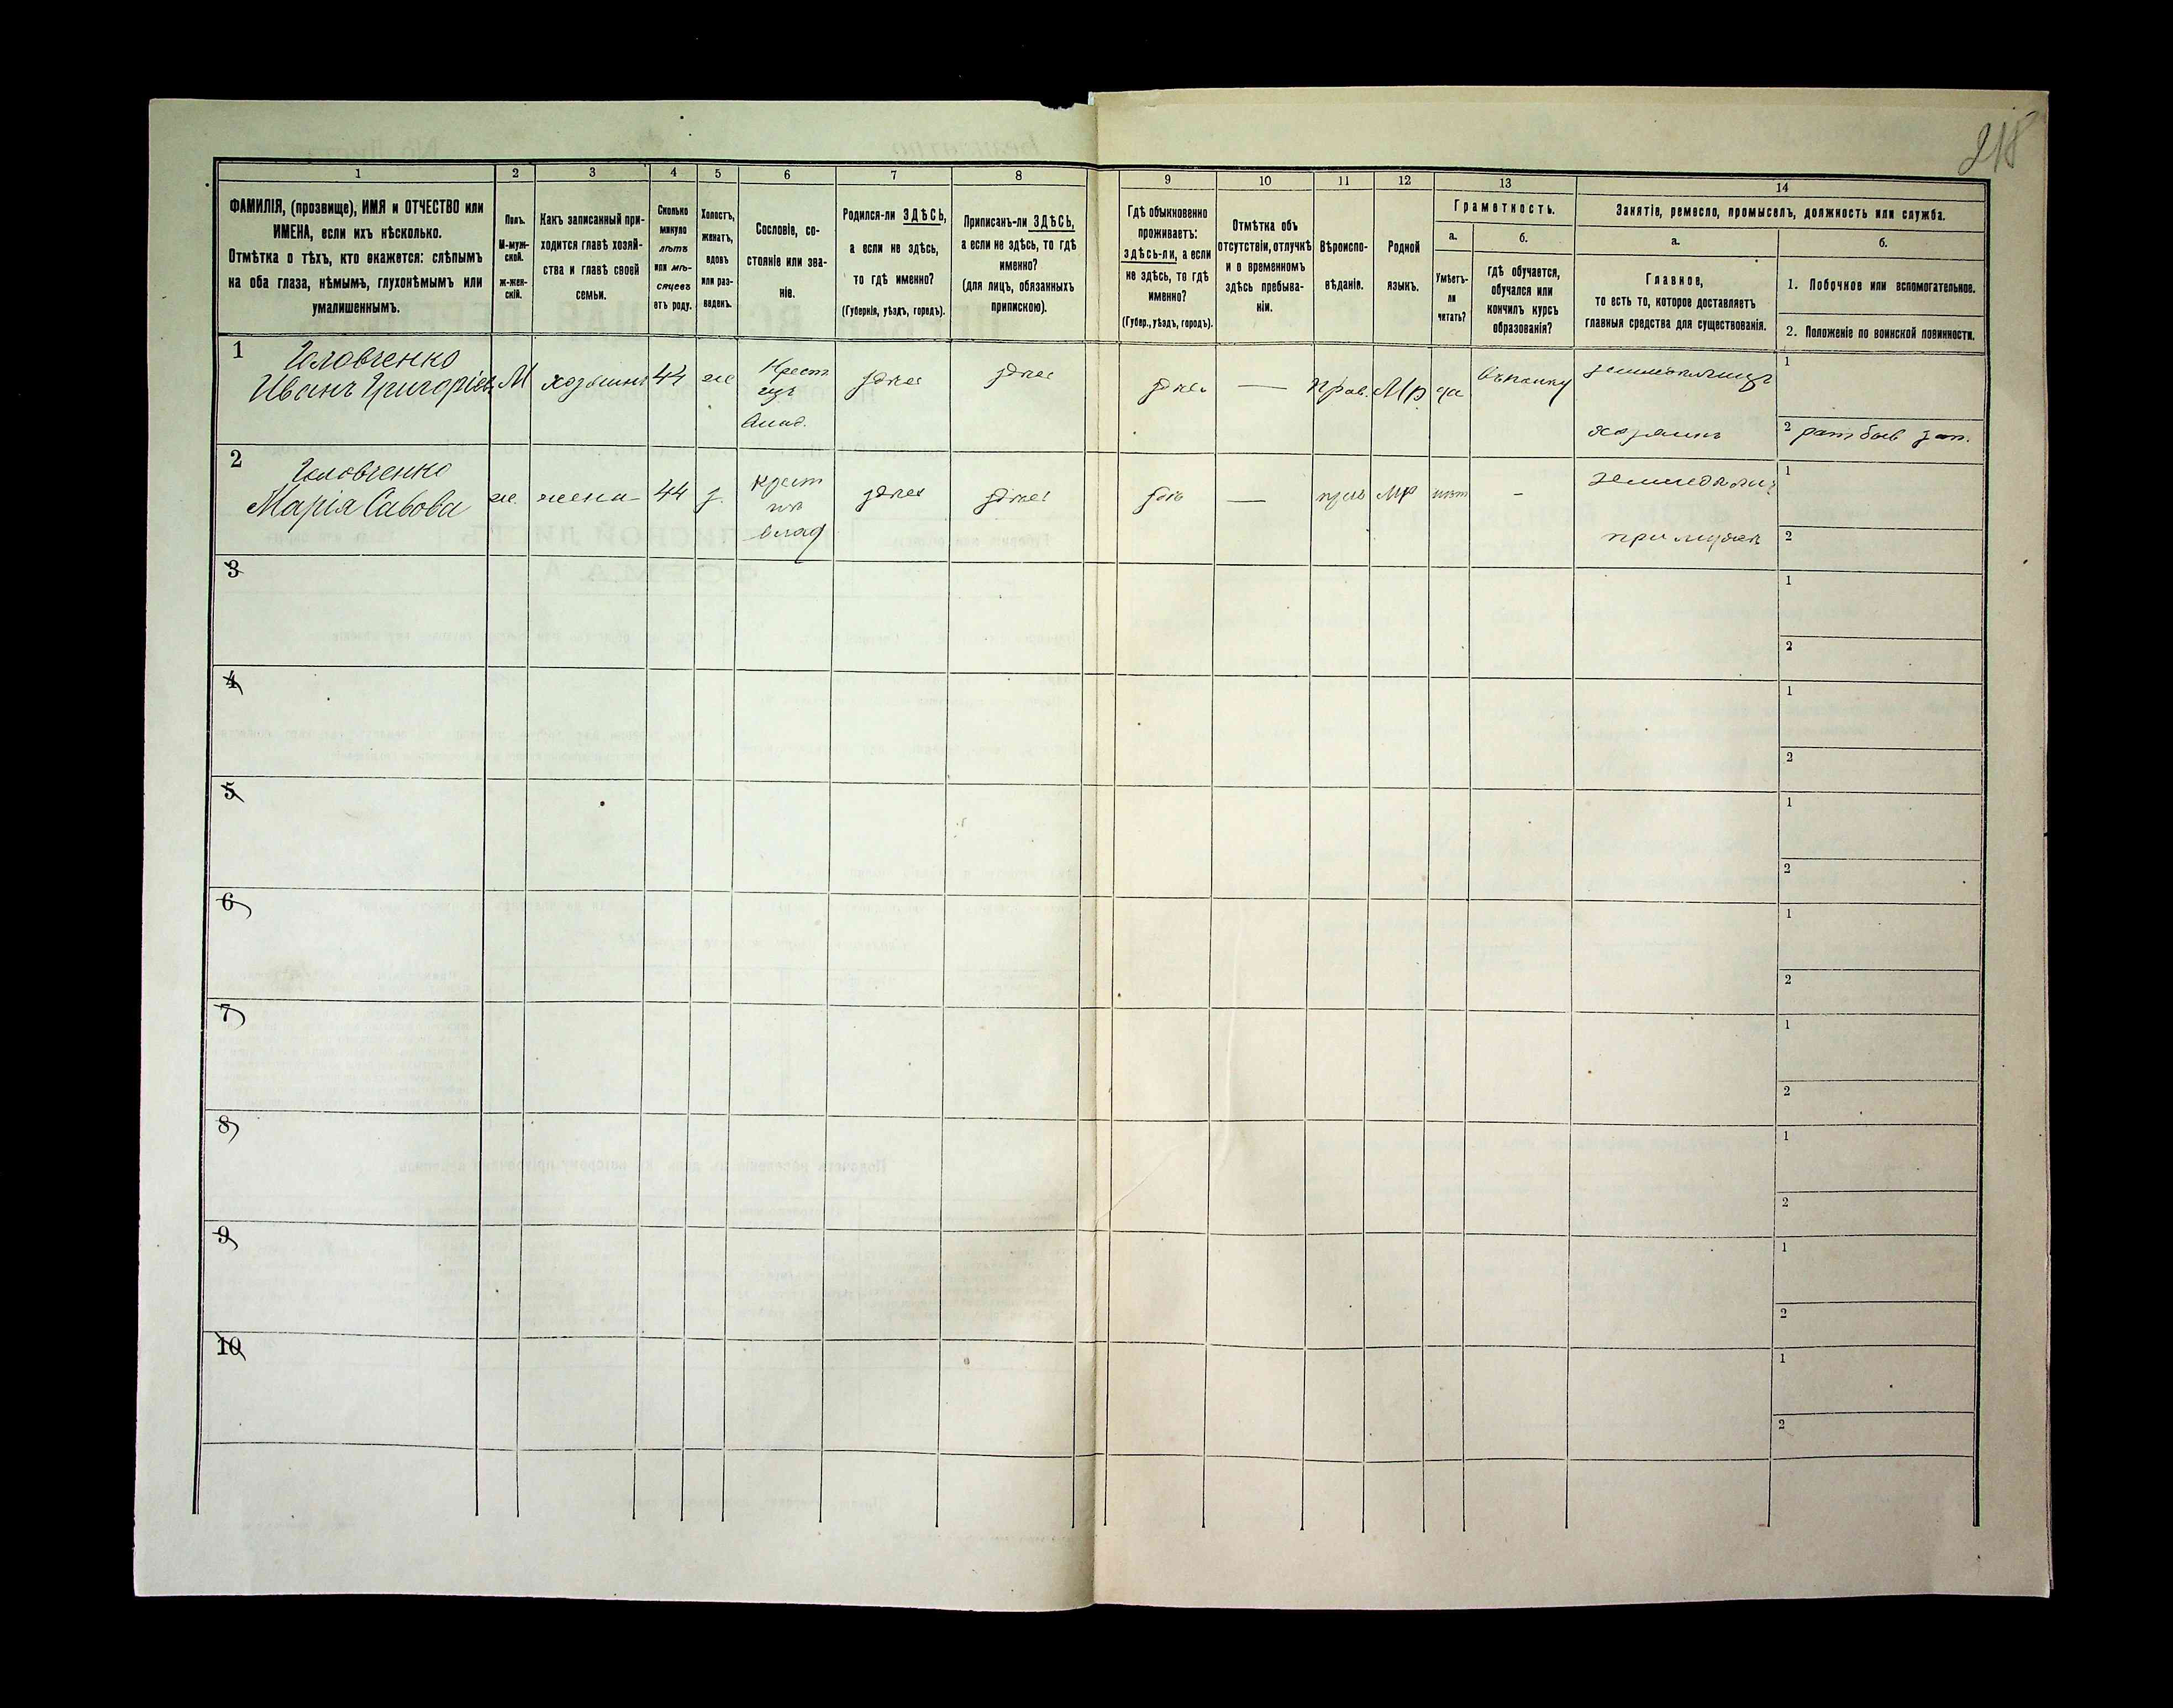 218
1
2
3
4
5
6
7
8
9
10
11
12
13
14
ФАМИЛІЯ, (прозвище), ИМЯ и ОТЧЕСТВО или
ИМЕНА, если ихъ нѣсколько.
Отмѣтка о тѣхъ, кто окажется: слѣпымъ
на оба глаза, нѣмымъ, глухонѣмымъ или
умалишеннымъ.
Полъ.
М-муж-
ской.
Ж-жен-
скій.
Какъ записанный при-
ходится главѣ хозяй-
ства и главѣ своей
семьи.
Сколько
минуло
лѣтъ
или мѣ-
сяцевъ
отъ роду.
Холостъ,
женатъ,
вдовъ
или раз-
веденъ.
Сословіе, со-
стояніе или зва-
ніе.
Родился-ли ЗДѢСЬ,
а если не здѣсь,
то гдѣ именно?
(Губернія, уѣздъ, городъ).
Приписанъ-ли ЗДѢСЬ,
а если не здѣсь, то гдѣ
именно?
(для лицъ, обязанныхъ
припискою).
Гдѣ обыкновенно
проживаетъ:
здѣсь-ли, а если
не здѣсь, то гдѣ
именно?
(Губер., уѣздъ, городъ).
Отмѣтка объ
отсутствіи, отлучкѣ
и о временномъ
здѣсь пребыва-
ніи.
Вѣроиспо-
вѣданіе.
Родной
языкъ.
Грамотность.
а.
Умѣетъ-
ли
читать?
б.
гдѣ обучается,
обучался или
кончилъ курсъ
образованія?
Занятіе, ремесло, промыселъ, должность или служба.
а.
Главное,
то есть то, которое доставляетъ
главныя средства для существованія.
б.
1. Побочное или вспомогательное.
2. Положеніе по воинской повинности.
1
Иванъ Григоріев
М
хозяинъ
44
ж
Крест
изъ
Влад.
здѣсь
здѣсь
здѣсь
—
Прав.
Мр
да
хозяинъ
1
2
2
Марія Савова
ж.
жена
44
з.
крест
изъ
влад
здѣсь
здѣсь
здѣ
—
прав
Мр
нѣт
-
при мужѣ
1
2
3
1
2
4
1
2
5
1
2
6
1
2
7
1
2
8
1
2
9
1
2
10
1
2